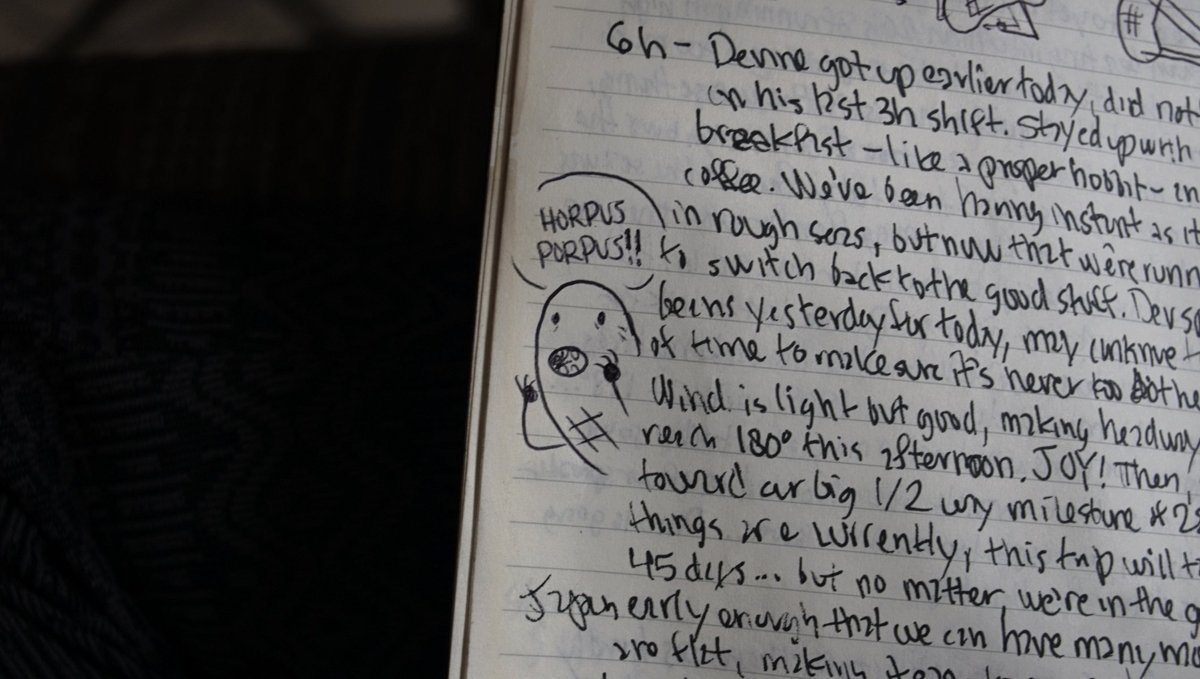 #
6h - Devine got up earlier today, did not
on his last 3h shift. Stayed up with
breakfast - like a proper hobbit - on
coffee. We've been having instant as it
in rough seas, but now that we're runn
to switch back to the good stuff. Dev
beans yesterday for today, may continue
of time to make sure it's never too
Wind is light but good, making headway
reach 180° this afternoon. JOY! Then,
toward our big 1/2 way milestone #2
things are currently, this trip will t
45 days... but no matter, we're in the g
Japan early enough that we can have many mo
are flat, making
HORPUS
PORPUS!!